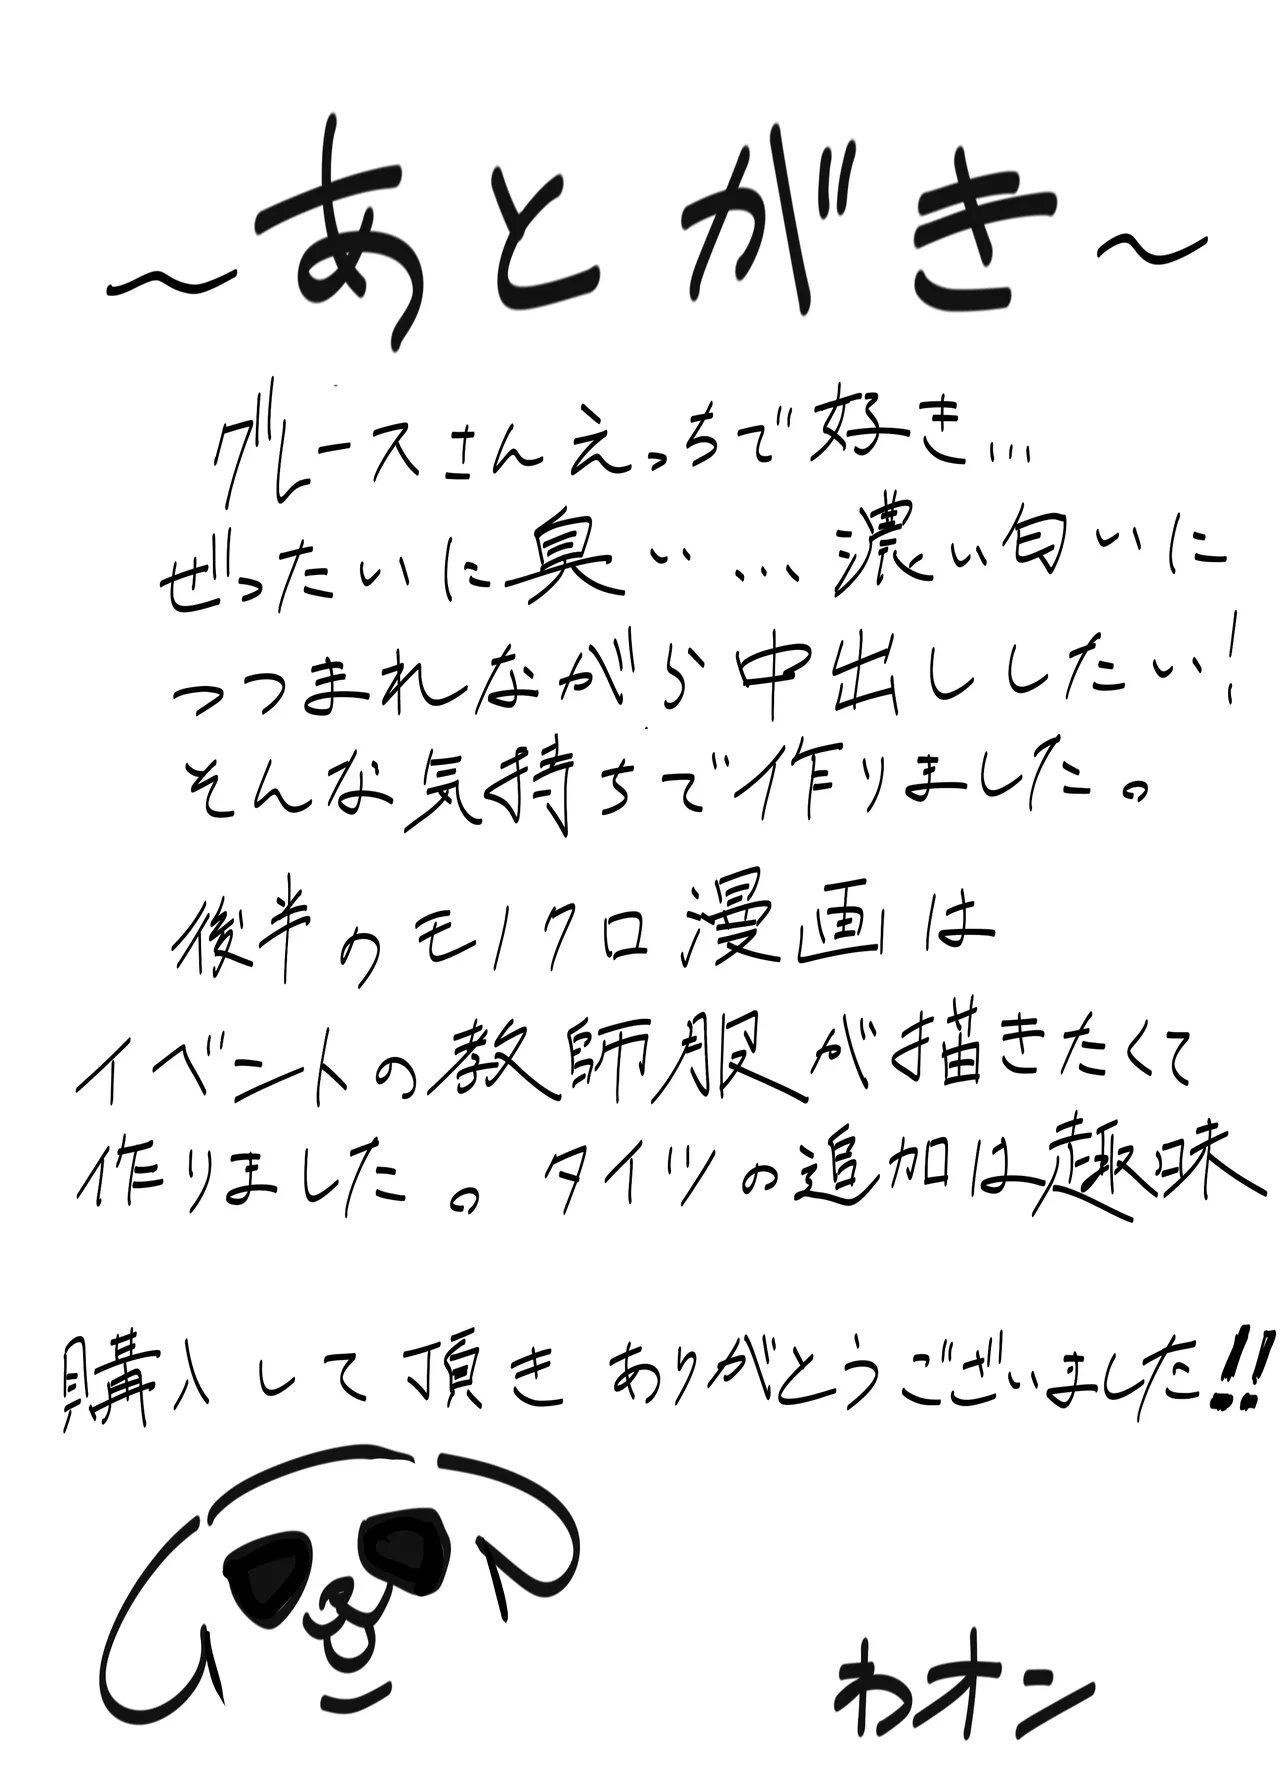 ～あとがき～
グレースさんえっちで好き…
ぜったいに臭い…濃い匂いに
つつまれながら中出ししたい!
そんな気持ちで作りました。
後半のモノクロ漫画は
イベントの教師服が描きたくて
作りました。タイツの追加は趣味
購入して頂きありがとうございました!!
わオン